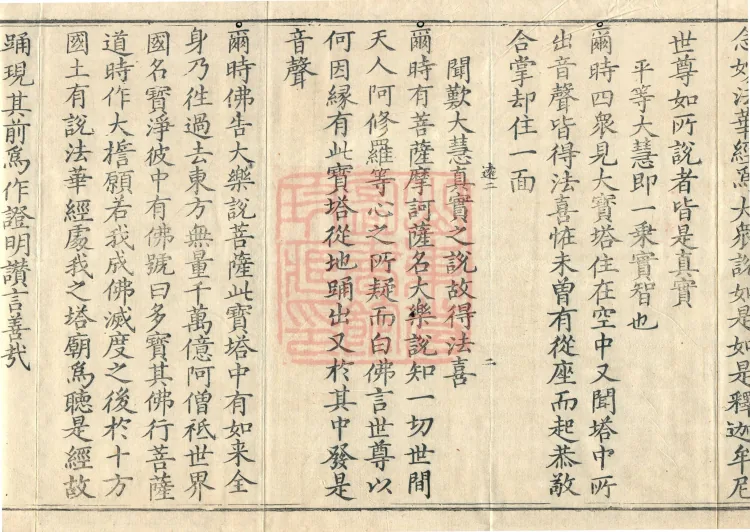 念妙法華經爲大衆說如是如是釋迦牟尼
世尊如所說者皆是真實
平等大慧即一乗實智也
爾時四衆見大寶塔住在空中又聞塔中所
出音聲皆得法喜恠未曽有從座而起恭敬
合掌却住一面
遠二 二
聞歎大慧真實之說故得法喜
爾時有菩薩摩訶薩名大樂說知一切世間
天人阿修羅等心之所疑而白佛言世尊以
何因緣有此寶塔從地踊出又於其中發是
音聲
爾時佛告大樂說菩薩此寶塔中有如来全
身乃徃過去東方無量千萬億阿僧祇世界
國名寶淨彼中有佛號曰多寶其佛行菩薩
道時作大誓願若我成佛滅度之後於十方
國土有說法華經處我之塔廟爲聽是經故
踊現其前爲作證明讃言善哉